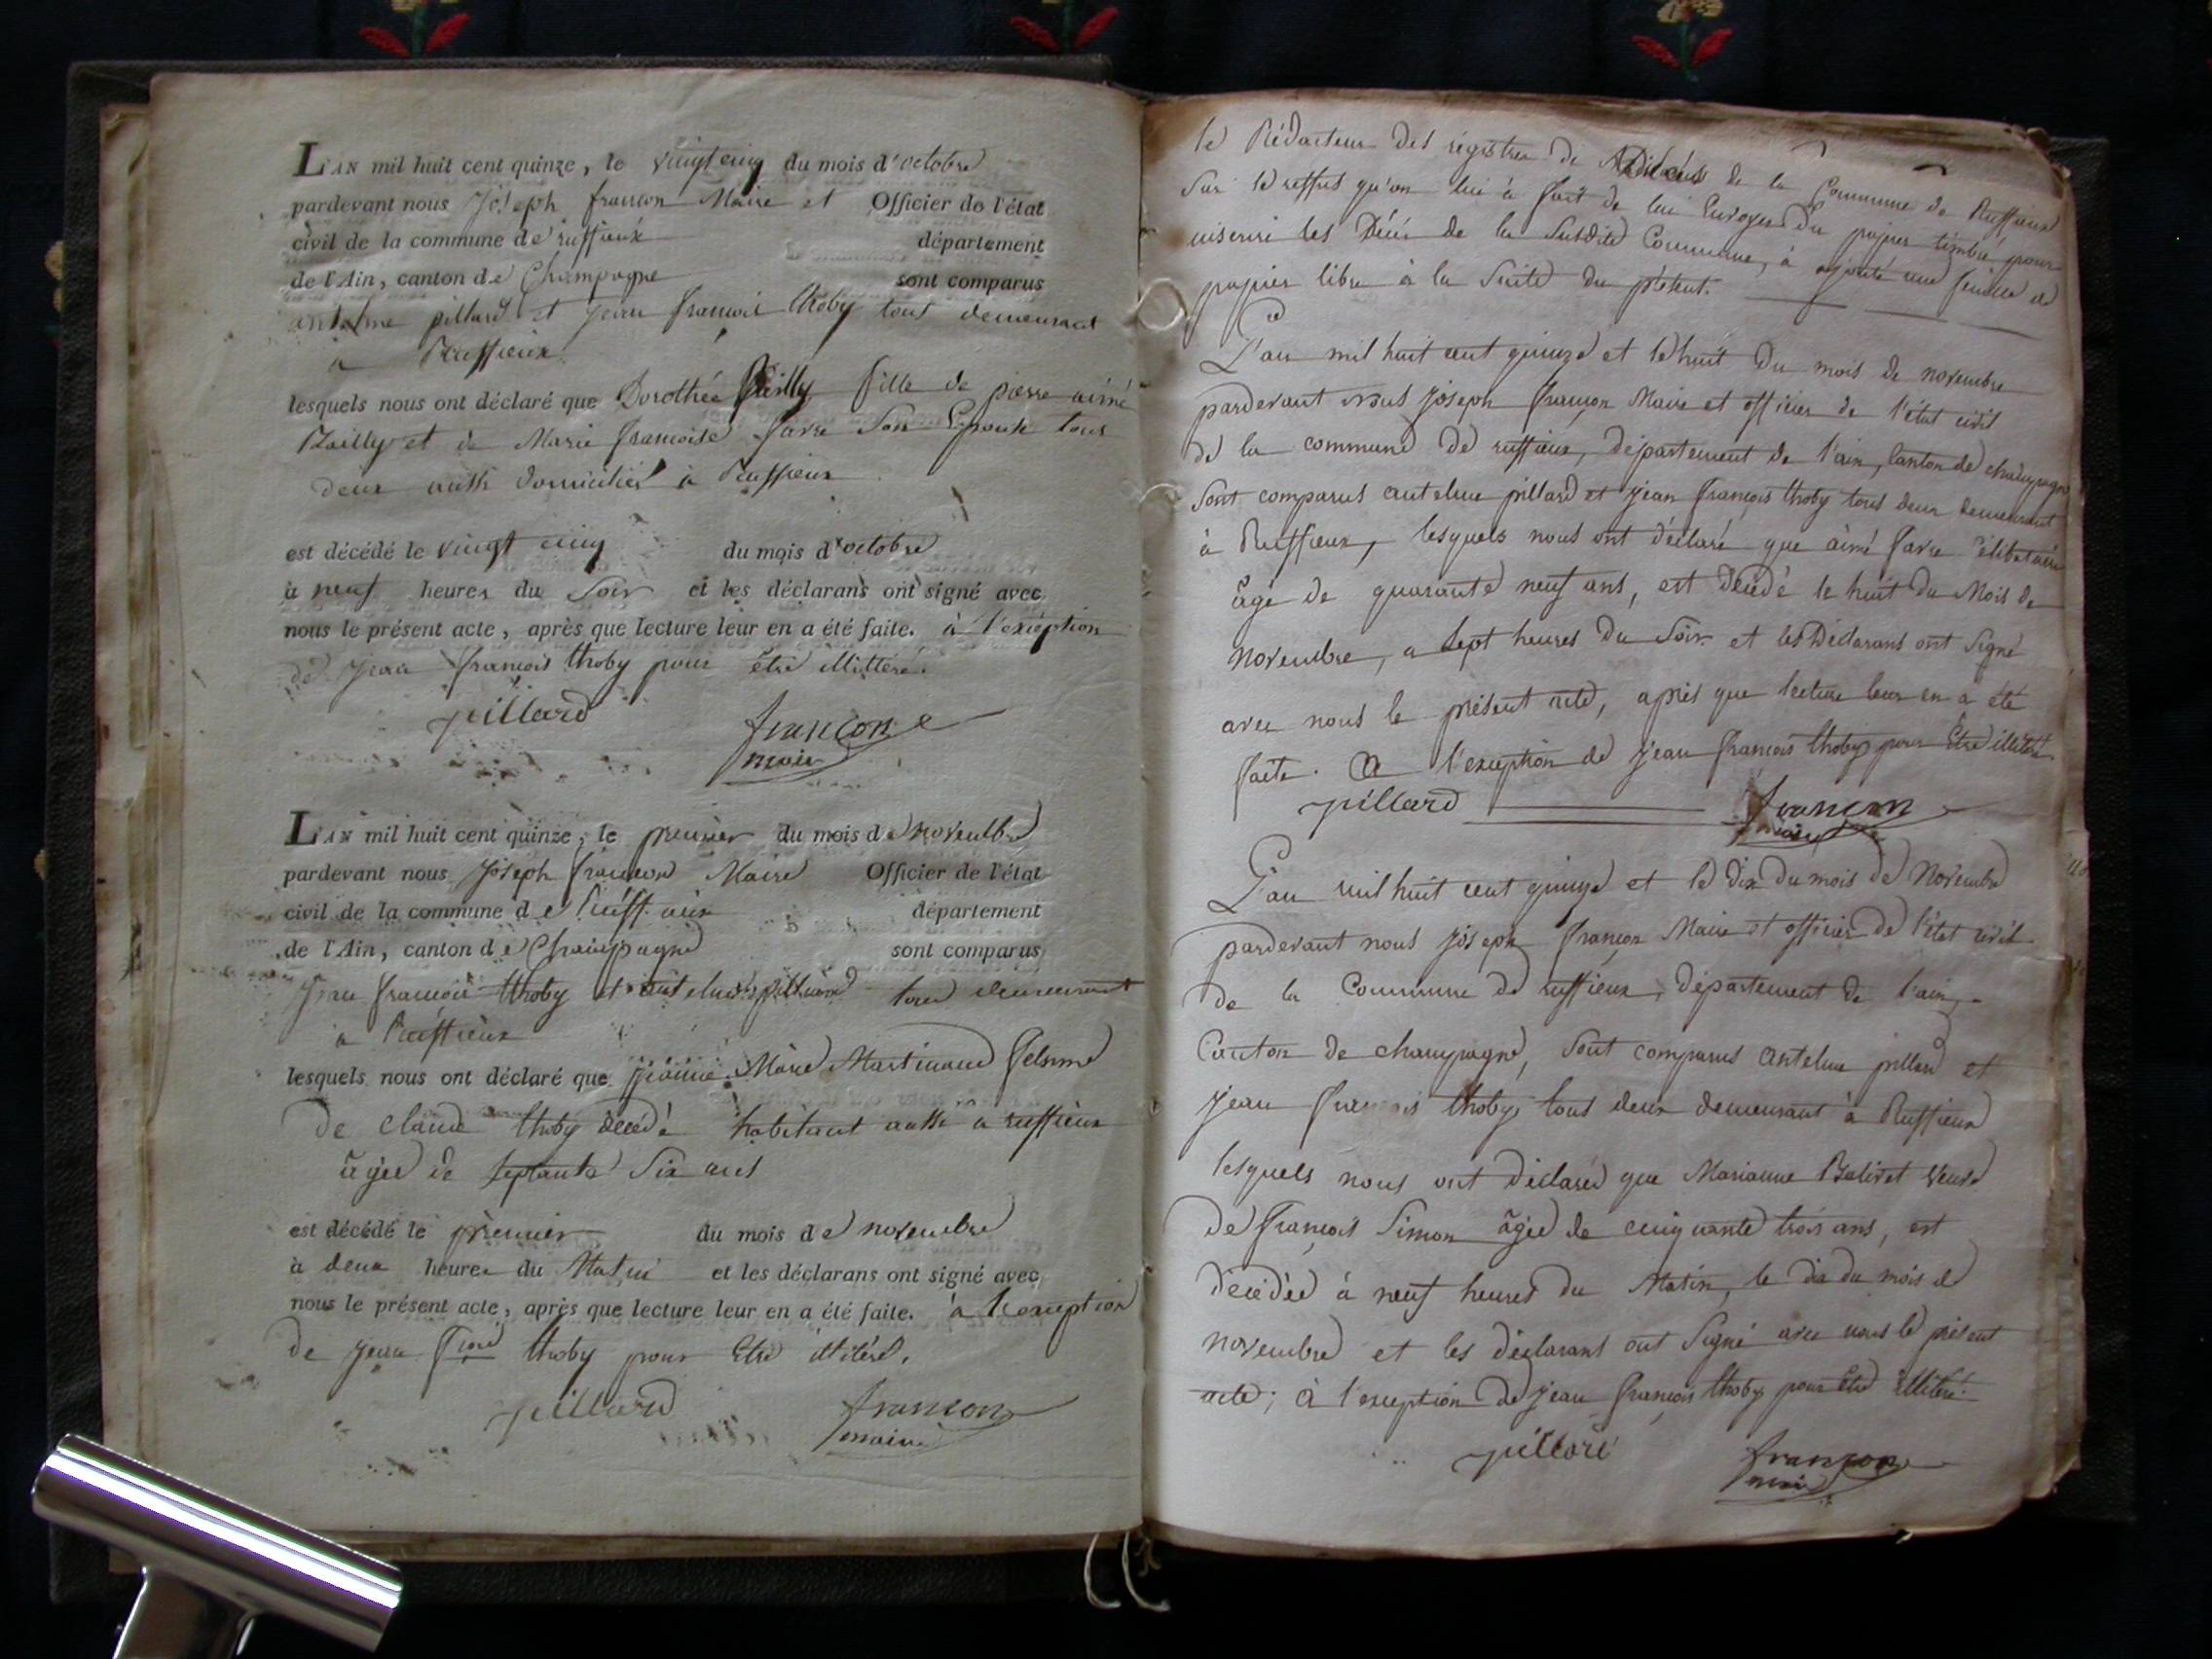 L'AN mil huit cent quinze, le vingt cinq du mois d'octobre
pardevant nous Joseph françon Maire et Officier de l'état
civil de la commune de ruffieux département
de l'Ain, canton de Champagne sont comparus
antelme pillard et jean françois thoby tous demeurant
a Ruffieux
lesquels nous ont déclaré que Dorothée Reilly fille de pierre aimé
Reilly et de Marie françoise favre son Epouse tous
deux aussi domiciliés à Ruffieux
est décédé le vingt cinq du mois d'octobre
à neuf heures du Soir et les déclarans ont signé avec
nous le présent acte, après que lecture leur en a été faite. à l'exception
de jean françois thoby pour être illittéré.
pillard françon
maire
L'AN mil huit cent quinze, le premier du mois de novembre
pardevant nous Joseph françon Maire Officier de l'état
civil de la commune de Ruffieux département
de l'Ain, canton de Champagne sont comparus
jean françois thoby et antelme pillard tous demeurant
a Ruffieux
lesquels nous ont déclaré que jeanne Marie Martinand
de claude thoby décédé habitant aussi a ruffieux
âgée de septante six ans
est décédé le premier du mois de novembre
à deux heures du Matin et les déclarans ont signé avec
nous le présent acte, après que lecture leur en a été faite. à l'exception
de jean fçois thoby pour Etre illitéré.
pillard françon
maire
le Rédacteur des régistres de décés de la Commune de Ruffieux
Sur le reffus qu'on lui à fait de lui Envoyer du papier timbré pour
inscrire les Décés de la Susdite Commune, à ajouté une feuille de
papier libre à la Suite du présent.
L'an mil huit cent quinze et le huit du mois de novembre
pardevant nous joseph françon Maire et officier de l'état civil
de la commune de ruffieux, département de l'ain, canton de champagne
Sont comparus antelme pillard et jean françois thoby tous deux demeurant
à Ruffieux, lesquels nous ont déclaré que aimé favre Célibataire
âgé de quarante neuf ans, est décédé le huit du Mois de
novembre, a Sept heures du Soir et les Déclarans ont Signé
avec nous le présent acte, après que lecture leur en a été
faite. A l'exception de jean françois thoby pour Etre illitéré.
pillard françon
maire
L'an mil huit cent quinze et le dix du mois de Novembre
pardevant nous joseph françon Maire et officier de l'état civil
de la Commune de ruffieux, département de l'ain,
Canton de champagne, Sont comparus antelme pillard et
jean françois thoby tous deux demeurant à Ruffieux
lesquels nous ont déclaré que Marianne Balivet veuve
de françois Simon âgée de cinquante trois ans, est
décédée à neuf heures du Matin, le dix du mois de
novembre et les déclarant ont Signé avec nous le présent
acte; à l'exception de jean françois thoby pour Etre illitéré.
pillard françon
maire